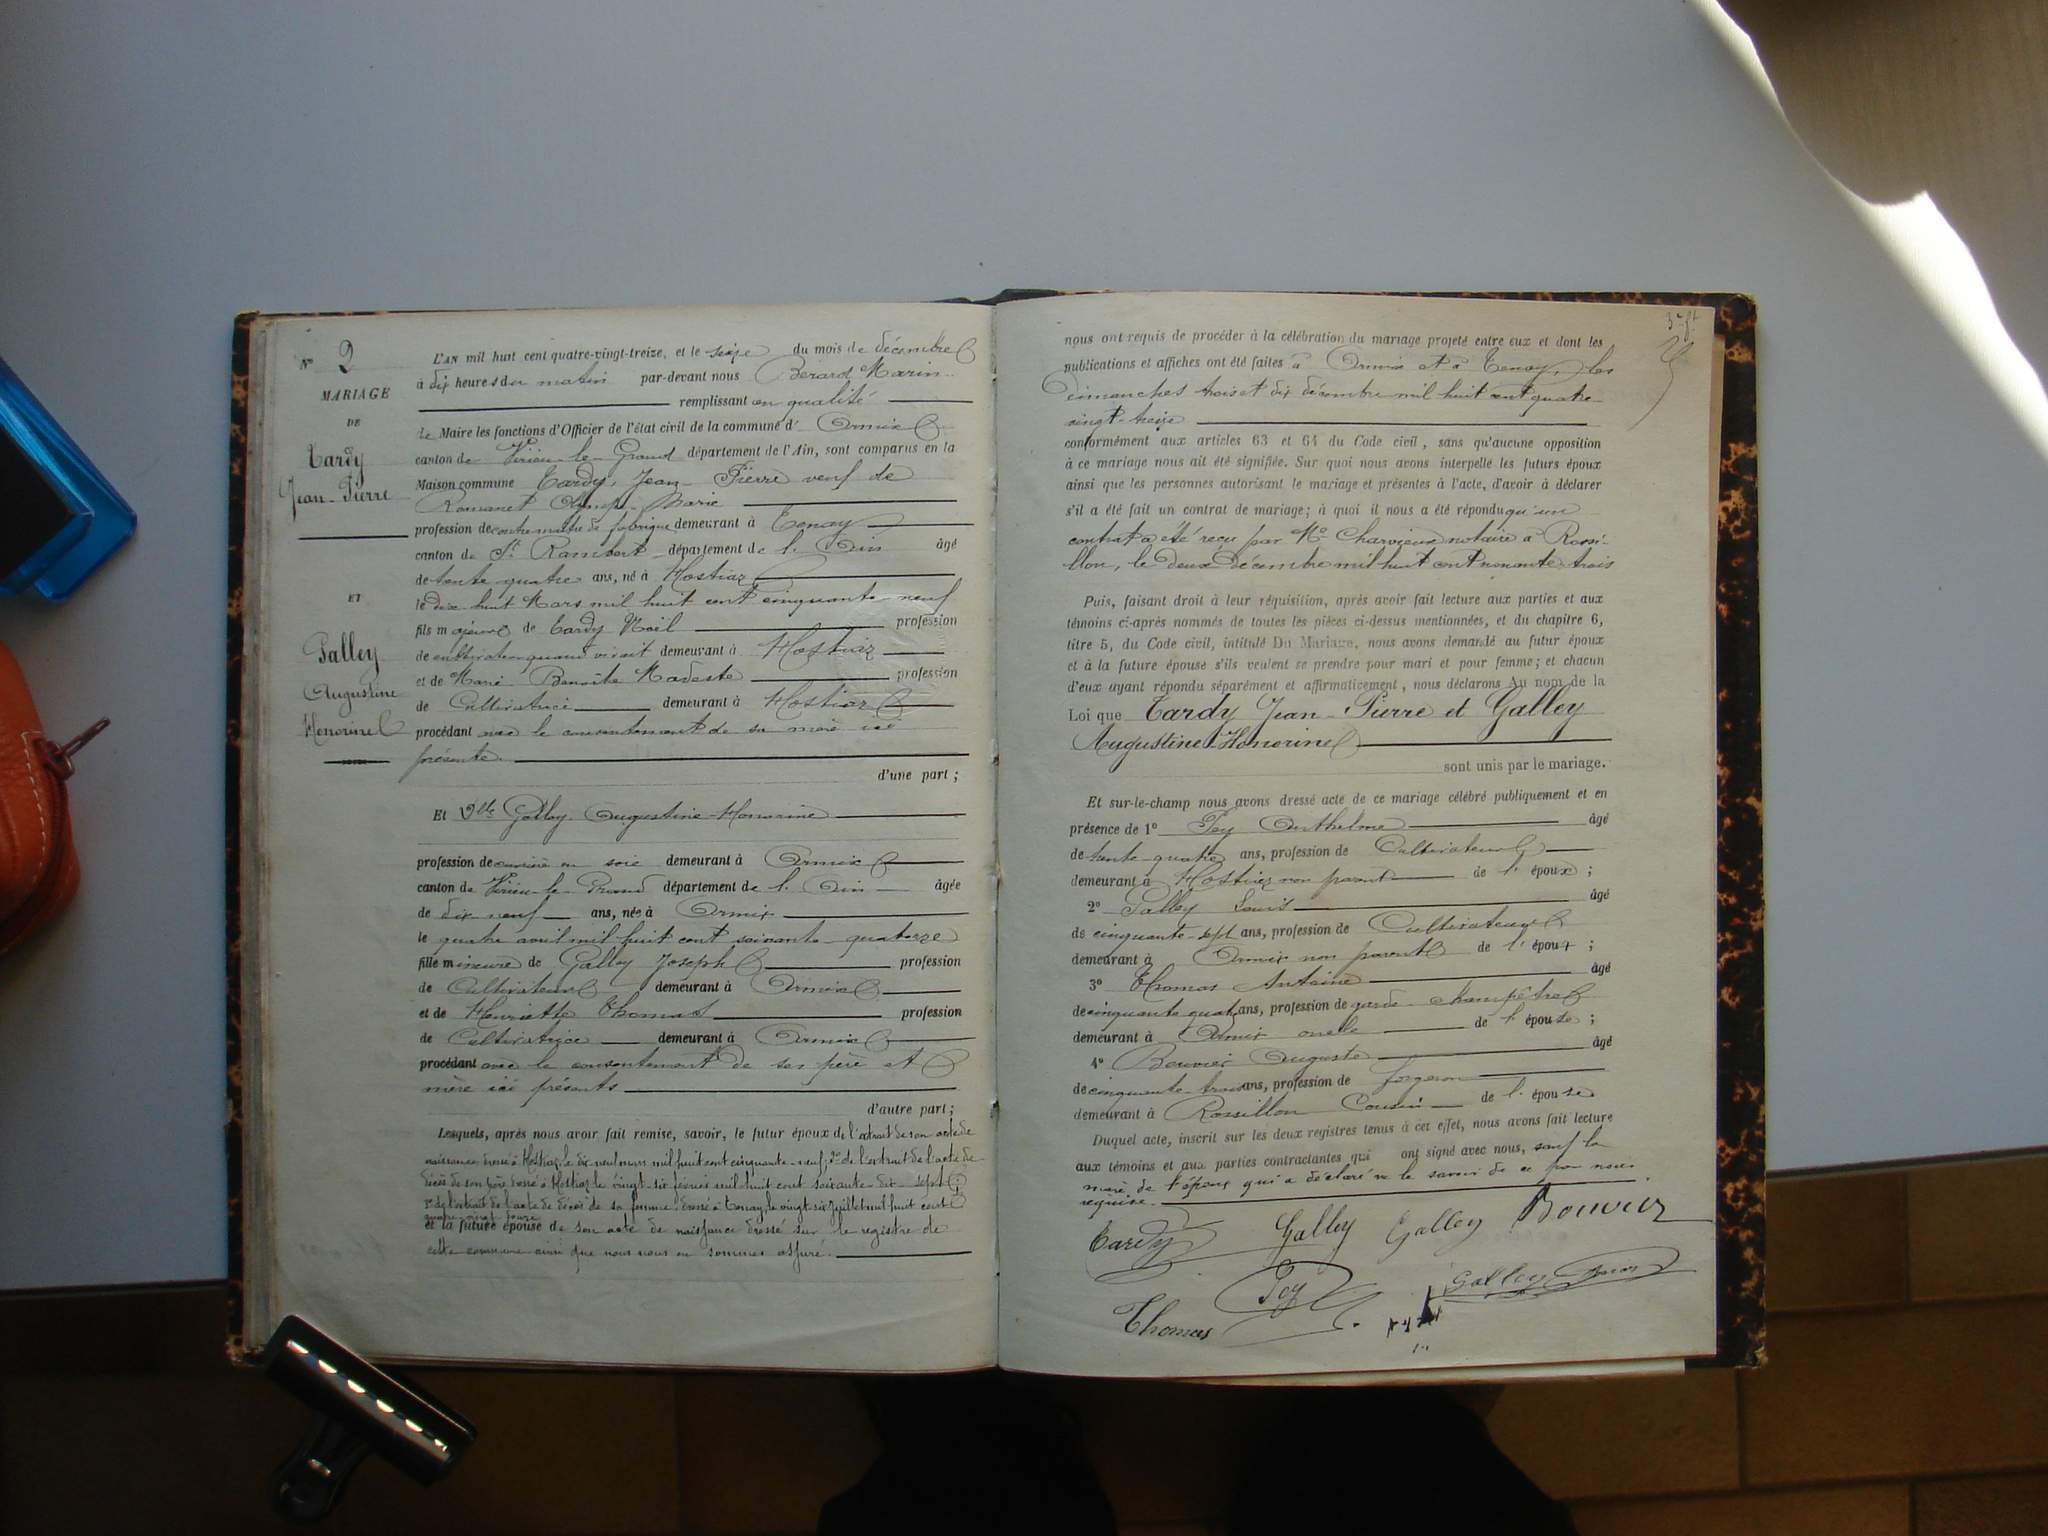 N° 2
MARIAGE
DE
Tardy
Jean-Pierre
ET
Galley
Augustine
Honorine
L'AN mil huit cent quatre-vingt-treize, et le seize du mois de décembre
à dix heures du matin par-devant nous Berard Marin
remplissant en qualité
de Maire les fonctions d'Officier de l'état civil de la commune d' Ormix
canton de Virieu-le-Grand département de l'Ain, sont comparus en la
Maison commune Tardy, Jean-Pierre veuf de
Romanet Olympe-Marie
profession de contremaître de fabrique demeurant à Tenay
canton de St Rambert département de l' Ain âgé
de tente quatre ans, né à Hostiaz
le dix huit Mars mil huit cent cinquante neuf
fils majeur de Tardy Noël profession
de cultivateur quand vivait demeurant à Hostiaz
et de Marie Benoîte Modeste profession
de Cultivatrice demeurant à Hostiaz
procédant avec le consentement de sa mère ici
présente
d'une part ;
Et Dlle Galley Augustine-Honorine
profession de ouvrière en soie demeurant à Ormix
canton de Virieu-le-Grand département de l' Ain âgée
de dix neuf ans, née à Ormix
le quatre avril mil huit cent soixante-quatorze
fille mineure de Galley Joseph profession
de Cultivateur demeurant à Ormix
et de Henriette Thomas profession
de Cultivatrice demeurant à Ormix
procédant avec le consentement de ses père et
mère ici présents
d'autre part ;
Lesquels, après nous avoir fait remise, savoir, le futur époux de l'extrait de son acte de
naissance dressé à Hostiaz le dix neuf mars mil huit cent cinquante-neuf; 2° de l'extrait de l'acte de
décès de son père dressé à Hostiaz le vingt-six février mil huit cent soixante-dix-sept;
3° de l'extrait de l'acte de décès de sa femme dressé à Tenay, le vingt six juillet mil huit cent
quatre-vingt douze
et la future épouse de son acte de naissance dressé sur le registre de
cette commune ainsi que nous nous en sommes assuré.
nous ont requis de procéder à la célébration du mariage projeté entre eux et dont les
publications et affiches ont été faites à Ormix et à Tenay, les
dimanches trois et dix décembre mil huit cent quatre
vingt-treize
conformément aux articles 63 et 64 du Code civil, sans qu'aucune opposition
à ce mariage nous ait été signifiée. Sur quoi nous avons interpellé les futurs époux
ainsi que les personnes autorisant le mariage et présentes à l'acte, d'avoir à déclarer
s'il a été fait un contrat de mariage; à quoi il nous a été répondu qu'un
contrat a été reçu par Me Charvieux notaire à Rossi-
llon, le deux décembre mil huit cent nonante trois
Puis, faisant droit à leur réquisition, après avoir fait lecture aux parties et aux
témoins ci-après nommés de toutes les pièces ci-dessus mentionnées, et du chapitre 6,
titre 5, du Code civil, intitulé Du Mariage, nous avons demandé au futur époux
et à la future épouse s'ils veulent se prendre pour mari et pour femme; et chacun
d'eux ayant répondu séparément et affirmativement, nous déclarons Au nom de la
Loi que Tardy Jean-Pierre et Galley
Augustine Honorine
sont unis par le mariage.
Et sur-le-champ nous avons dressé acte de ce mariage célébré publiquement et en
présence de 1° Pey Anthelme âgé
de tente-quatre ans, profession de Cultivateur
demeurant à Hostiaz non parent de l' époux ;
2° Galley Louis âgé
de cinquante-sept ans, profession de Cultivateur
demeurant à Ormix non parent de l' époux ;
3° Thomas Antoine âgé
de cinquante quatre ans, profession de garde-champêtre
demeurant à Ormix oncle de l' épouse ;
4° Bouvier Auguste âgé
de cinquante-trois ans, profession de forgeron
demeurant à Rossillon Cousin de l' épouse
Duquel acte, inscrit sur les deux registres tenus à cet effet, nous avons fait lecture
aux témoins et aux parties contractantes qui ont signé avec nous, sauf la
mère de l'époux qui a déclaré ne le savoir de ce par nous
requise.
Tardy Galley Galley Bouvier
Pey Galley
Thomas